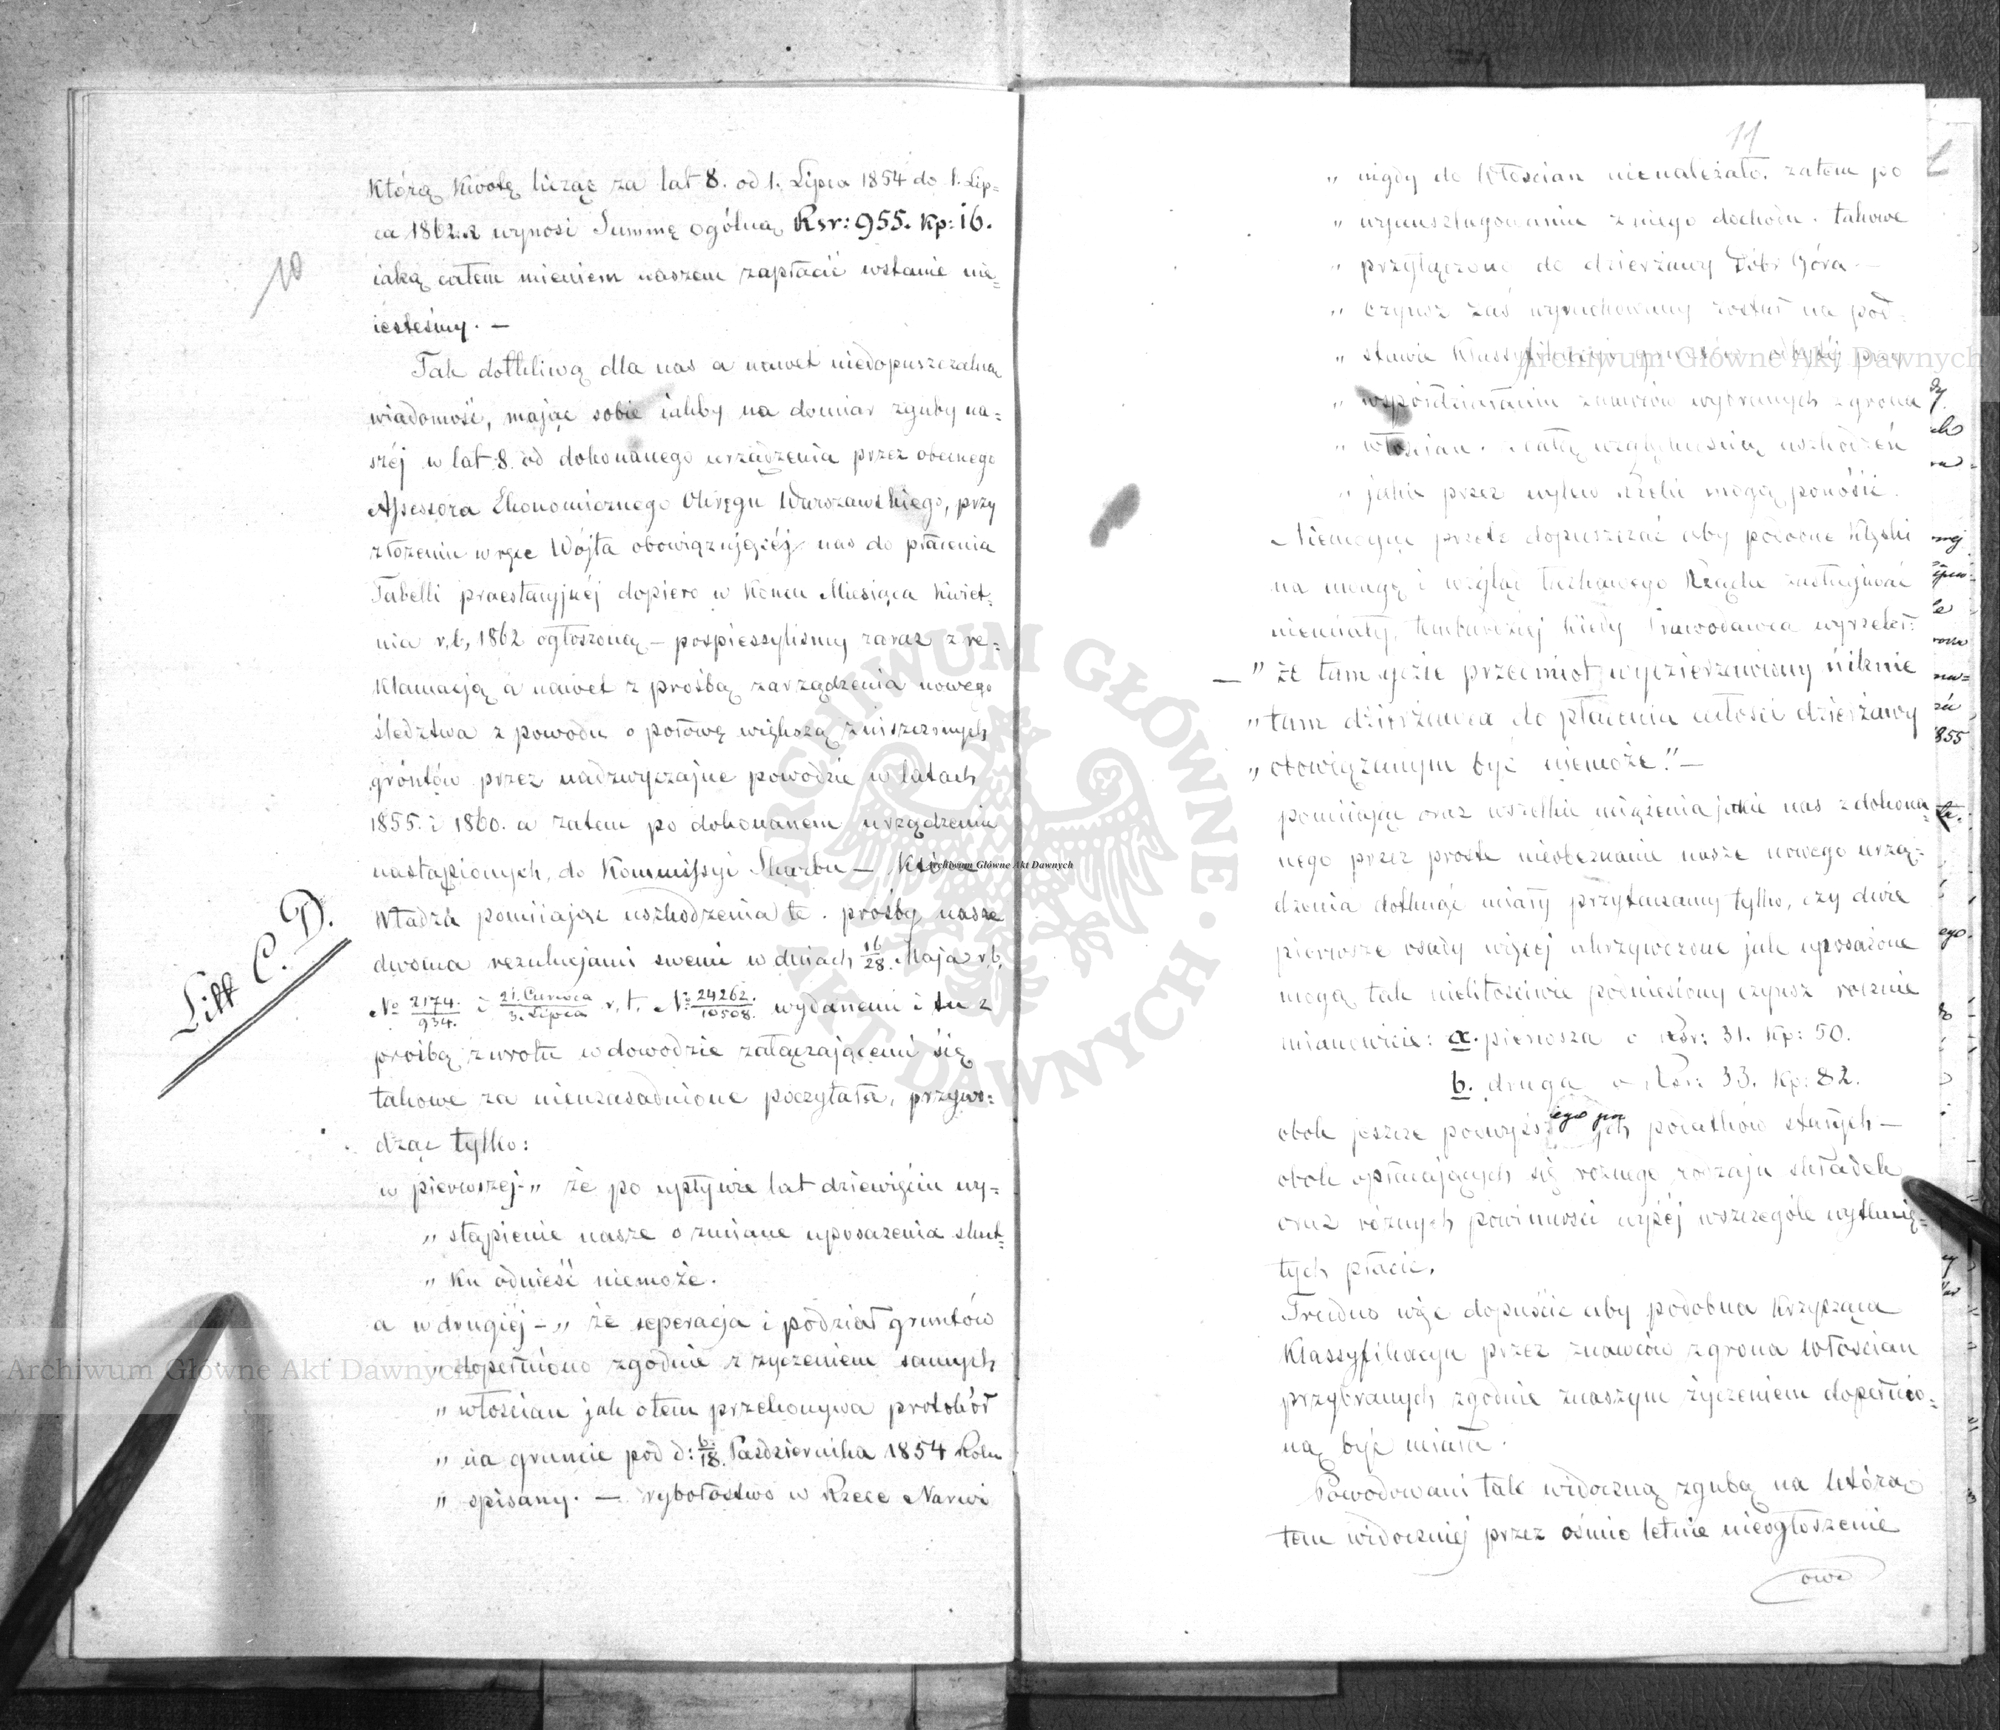 10
którą kwotę licząc za lat 8. od 1. Lipca 1854 do 1. Lip=
ca 1862. r wynosi Summę ogólną Rsr: 955. kp: 16.
iaką całem mieniem naszem zapłacić wstanie nie=
iesteśmy. —
Tak dotkliwą dla nas a nawet niedopuszczalną
wiadomość, mając sobie iakby na domiar zguby na=
széj w lat 8. od dokonanego urządzenia przez obecnego
Assessora Ekonomicznego Okręgu Warszawskiego, przy
złożeniu w ręce Wójta obowiązującéj nas do płacenia
Tabelli praestacyjnéj dopiero w Koncu Miesiąca Kwiet=
nia r. b. 1862 ogłoszoną — pospieszyliśmy zaraz z re=
klamacją a nawet z prośbą zarządzenia nowego
śledztwa z powodu o połowę większą zniszczonych
gróntów przez nadzwyczajne powodzie w latach
1855. i 1860. a zatem po dokonanem urządzeniu
nastąpionych, do Kommissyi Skarbu — która
Litt C. D.
Władza pomijając uszkodzenia te. prośby nasze
dwoma rezolucjami swemi w dniach 16/28. Maja r. b.
No 2174./934. i 21. Czerwca/3. Lipca r. t. No 24262./10508. wydanemi i tu z
prośbą zwrotu w dowodzie załączającemi się
takowe za nieuzasadnione poczytała, przywo=
dząc tylko:
w pierwszej — „ że po upływie lat dziewięciu wy=
„ stąpienie nasze o zmianę uposażenia skut=
„ ku odnieść niemoże.
a w drugiéj — „ że seperacja i podział gruntów
„ dopełniono zgodnie z życzeniem samych
„ włościan jak otem przekonywa protokół
„ na gruncie pod d: 6./18. Października 1854 Roku
„ spisany. — rybołostwo w Rzece Narwi
11
„ nigdy do Włościan nienależało. zatem po
„ wypośrodkowaniu z niego dochodu. takowe
„ przyłączone do dzierżawy Dóbr Góra —
„ czynsz zaś wyrachowany został na pod=
„ stawie Klassyfikacyi gruntów odbytéj przy
„ współdziałaniu znawców wybranych z grona
„ włościan. z całą względnością uszkodzeń
„ jakie przez wylew Rzeki mogą ponosić.
Niemogąc przeto dopuszczać aby podobne klęski
na uwagę i wzgląd łaskawego Rządu zasługiwać
niemiały, tembardziéj kiedy Prawodawca wyrzekł:
— „ że tam gdzie przedmiot wydzierżawiony niknie
„ tam dzierżawca do płacenia całości dzierżawy
„ obowiązanym być niemoże." —
pomijając oraz wszelkie uciążenia jakie nas z dokona=
nego przez proste nieobeznanie nasze nowego urzą=
dzenia dotknąć miały przytaczamy tylko, czy dwie
pierwsze osady więcéj ukrzywdzone jak uposażone
mogą tak nielitościwie podniesiony czynsz rocznie
mianowicie: a. pierwsza o Rsr: 31. kp: 50.
b. druga o Rsr: 33. kp: 82.
obok jeszcze podatków stałych —
obok opłacających się rożnego rodzaju składek
oraz różnych powinności wyżéj wszczególe wytknię=
tych płacić.
Trudno więc dopuścić aby podobna krzycząca
Klassyfikacya przez znawców z grona Włościan
przybranych zgodnie z naszym życzeniem dopełnio=
ną być miała.
Powodowani tak widoczną zgubą na którą
tem widoczniéj przez ośmio letnie nieogłoszenie
owe
dy
1855
Archiwum Główne Akt Dawnych
Archiwum Główne Akt Dawnych
Archiwum Główne Akt Dawnych
ARCHIWUM GŁÓWNE · AKT DAWNYCH ·